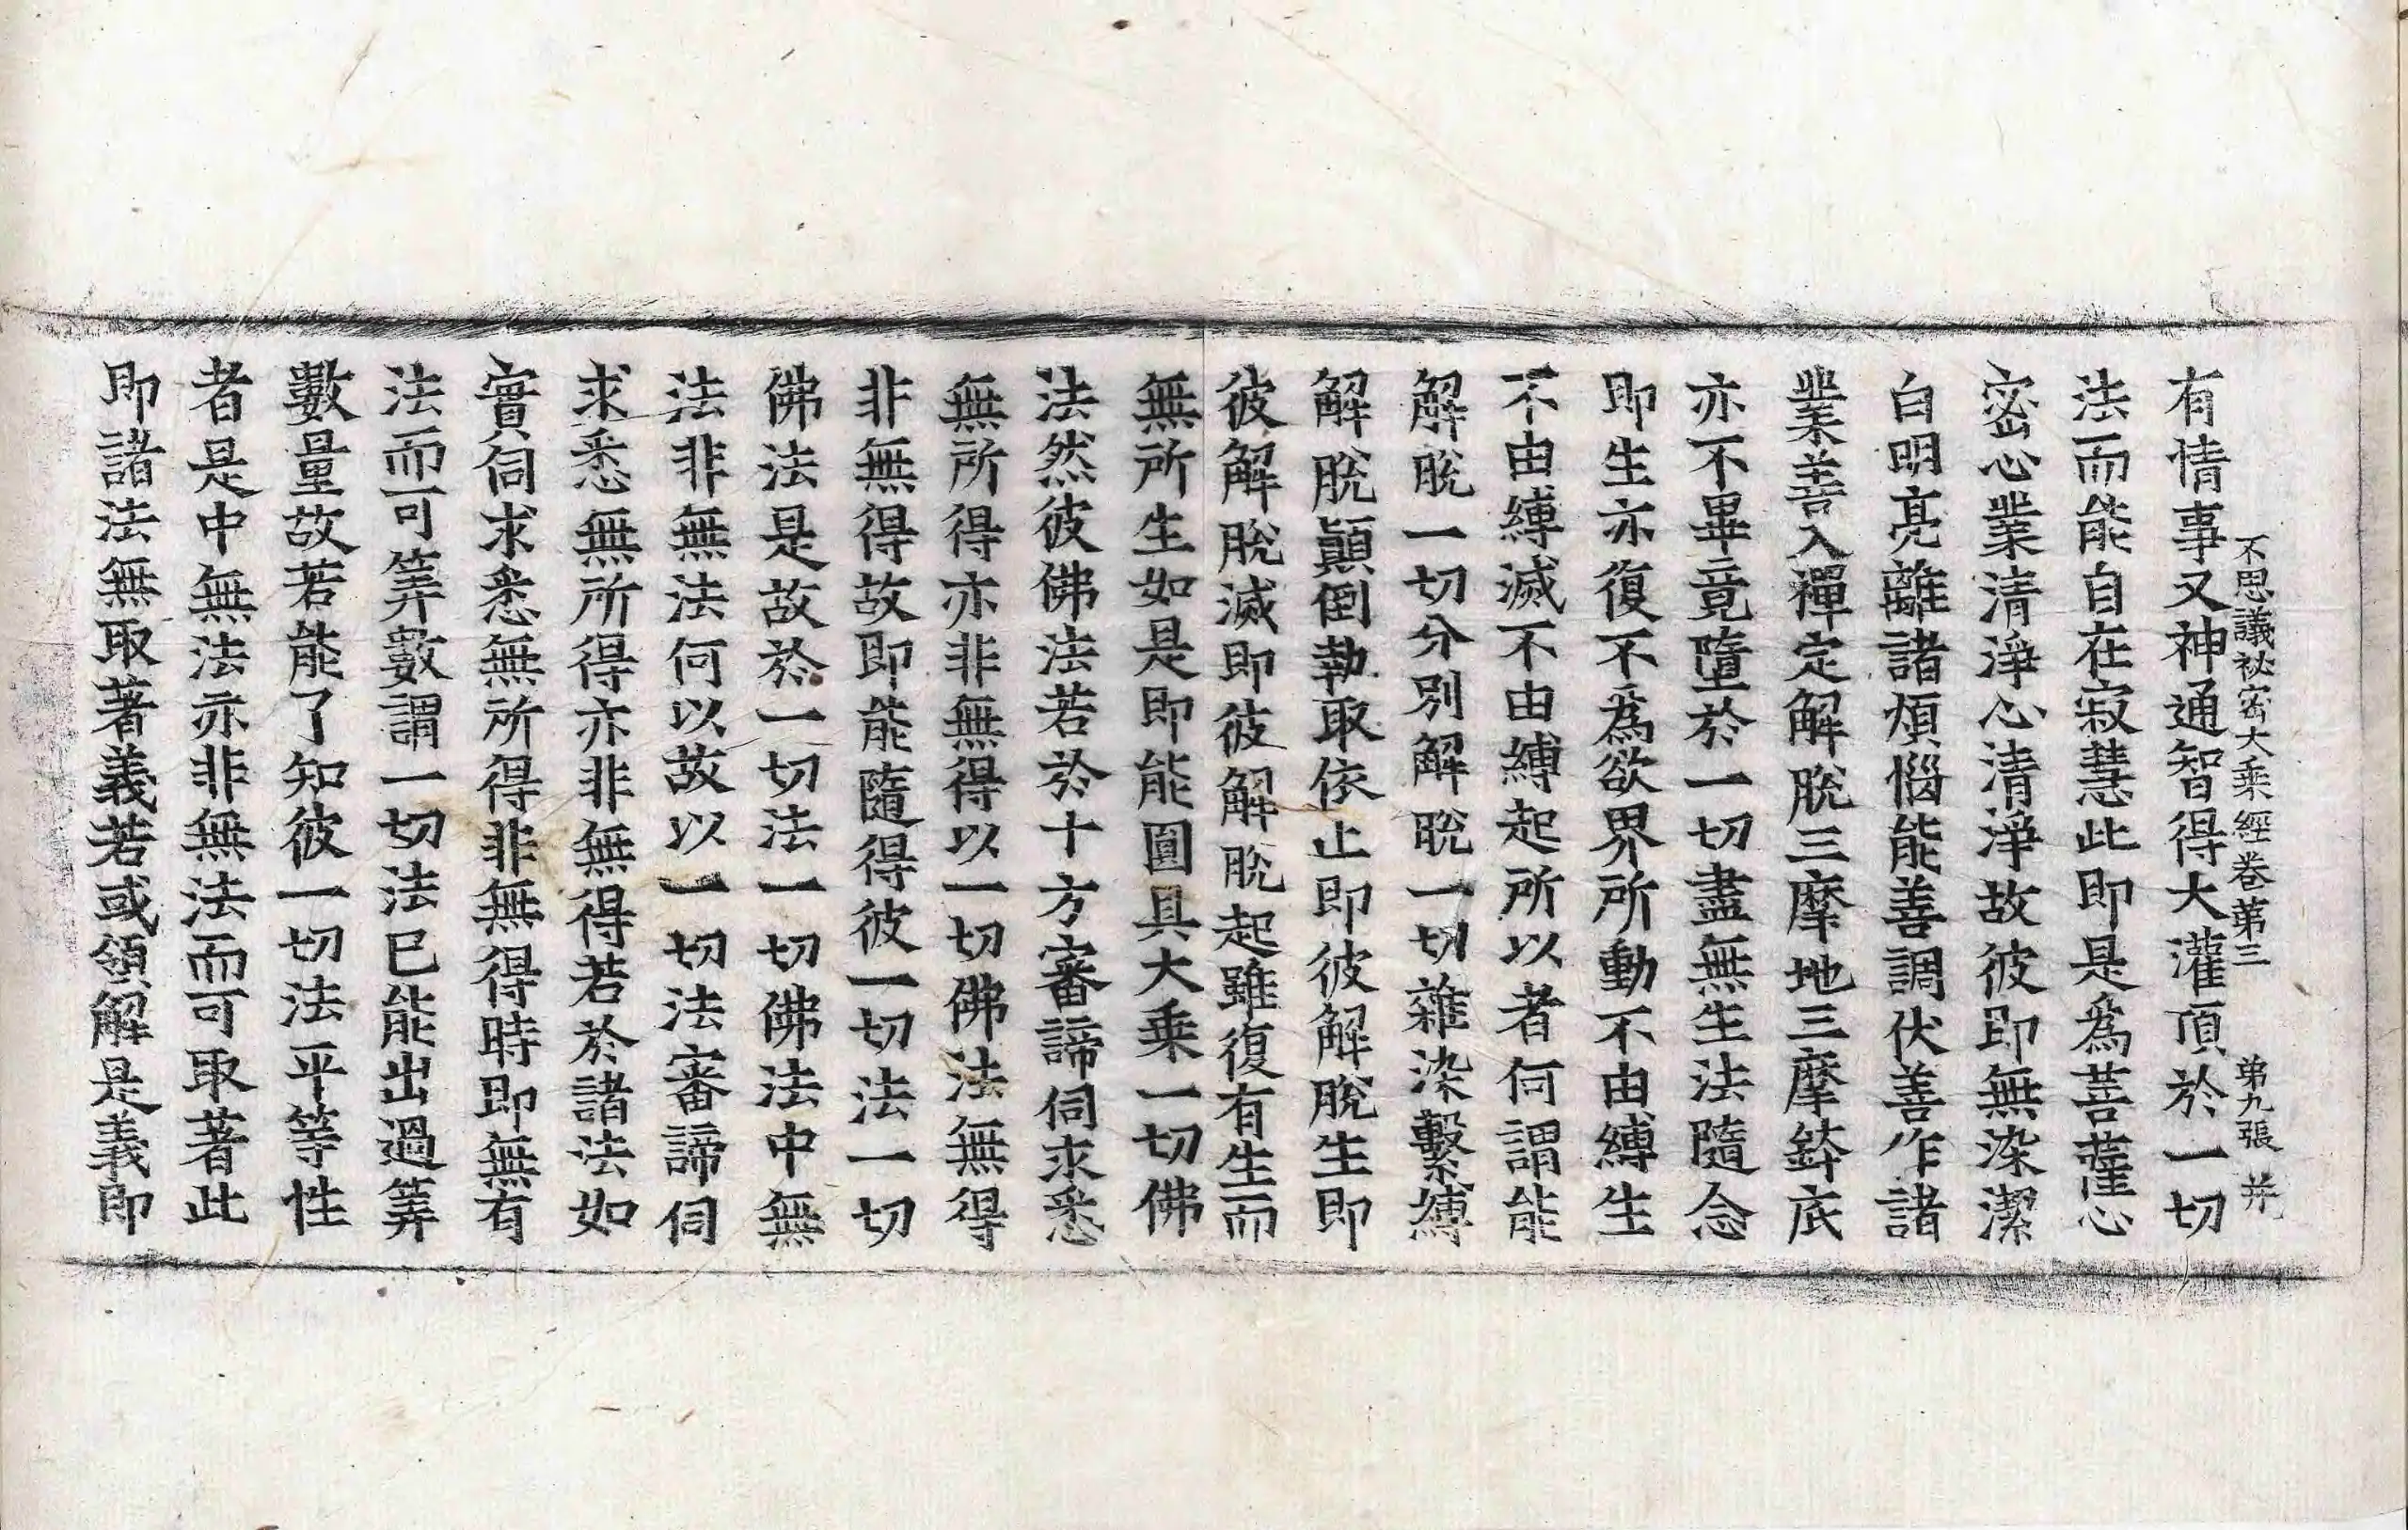 不思議祕密大乘經卷第三 第九張 并
有情事又神通智得大灌頂於一切
法而能自在寂慧此即是爲菩薩心
密心業清淨心清淨故彼即無染潔
白明亮離諸煩惱能善調伏善作諸
業善入禪定解脫三摩地三摩鉢底
亦不畢竟墮於一切盡無生法隨念
即生亦復不爲欲界所動不由縛生
不由縛滅不由縛起所以者何謂能
解脫一切分別解脫一切雜染繫縛
解脫顚倒執取依止即彼解脫生即
彼解脫滅即彼解脫起雖復有生而
無所生如是即能圓具大乘一切佛
法然彼佛法若於十方審諦伺求悉
無所得亦非無得以一切佛法無得
非無得故即能隨得彼一切法一切
佛法是故於一切法一切佛法中無
法非無法何以故以一切法審諦伺
求悉無所得亦非無得若於諸法如
實伺求悉無所得非無得時即無有
法而可筭數謂一切法已能出過筭
數量故若能了知彼一切法平等性
者是中無法亦非無法而可取著此
即諸法無取著義若或領解是義即